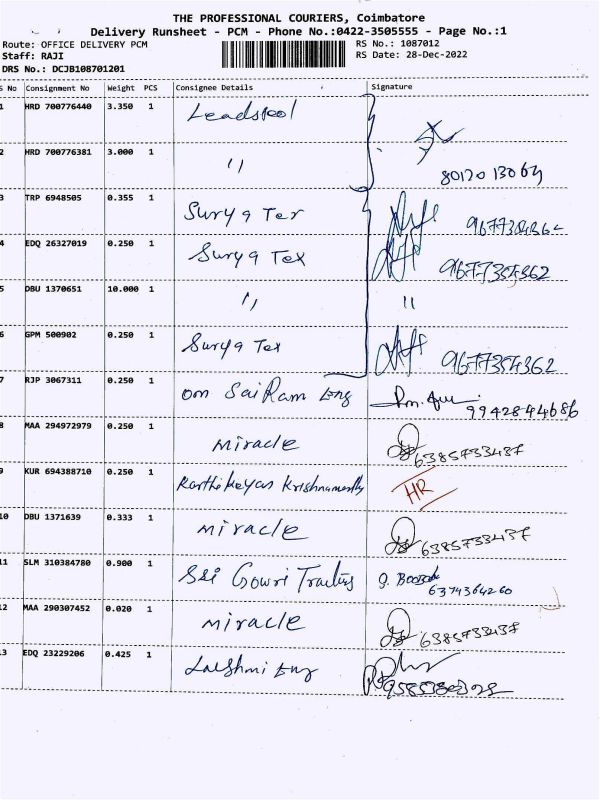 THE PROFESSIONAL COURIERS, Coimbatore
Delivery Runsheet - PCM - Phone No.:0422-3505555 - Page No.:1
Route: OFFICE DELIVERY PCM RS No.: 1087012
Staff: RAJI RS Date: 28-Dec-2022
DRS No.: DCJB108701201
S No Consignment No Weight PCS Consignee Details Signature
1 HRD 700776440 3.350 1
2 HRD 700776381 3.000 1 " 
3 TRP 6948505 0.355 1 Surya Tex
4 EDQ 26327019 0.250 1 Surya Tex 9677354362
5 DBU 1370651 10.000 1 " "
6 GPM 500902 0.250 1 Surya Tex 9677354362
7 RJP 3067311 0.250 1 Om Sai Ram Eng 9942844686
8 MAA 294972979 0.250 1 miracle 6385733437
9 KUR 694388710 0.250 1 Karthikeyan Krishnamoorthy HR
10 DBU 1371639 0.333 1 miracle 6385733437
11 SLM 310384780 0.900 1 Sri Gowri Trading 6374364260
12 MAA 290307452 0.020 1 miracle 6385733437
13 EDQ 23229206 0.425 1 Lakshmi Eng